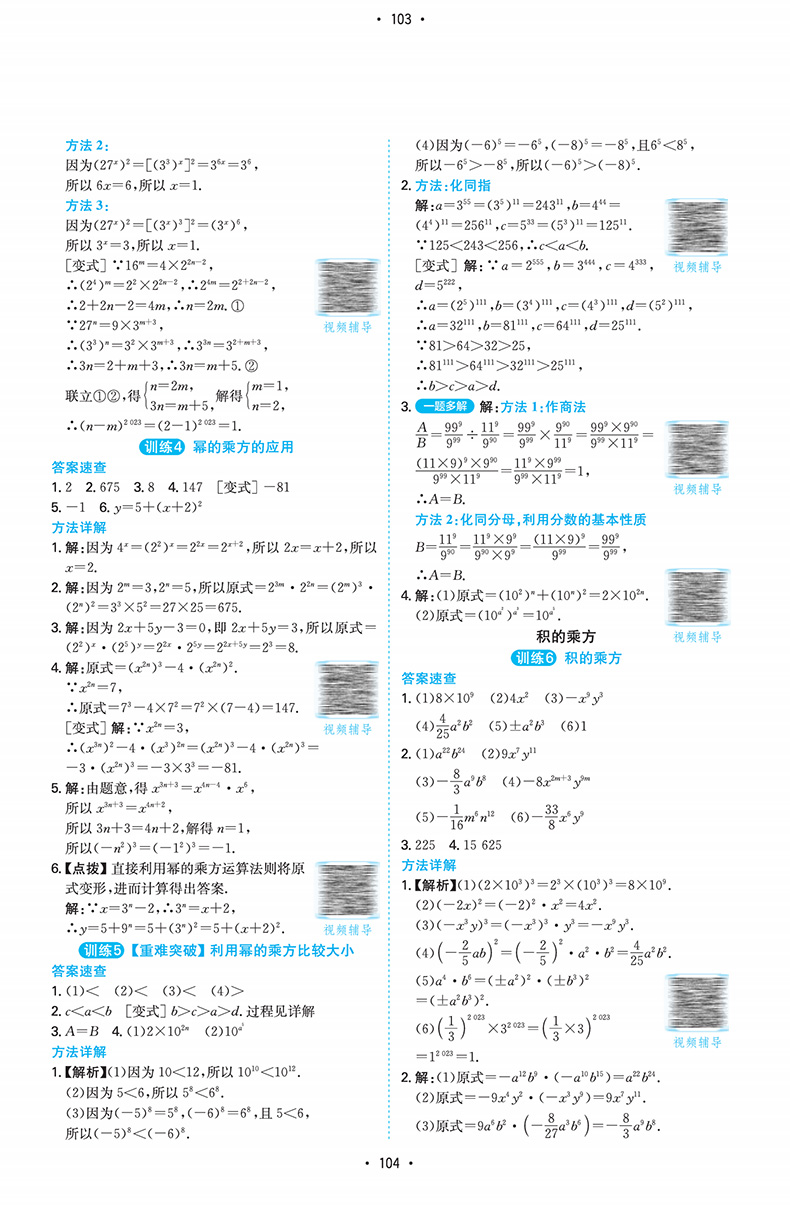 • 103 •
方法 2:
因为(27ˣ)²=[(3³)ˣ]²=3⁶ˣ=3⁶,
所以 6x=6,所以 x=1.
方法 3:
因为(27ˣ)²=[(3ˣ)³]²=(3ˣ)⁶,
所以 3ˣ=3,所以 x=1.
[变式] ∵16ᵐ=4×2²ⁿ⁻²,
∴(2⁴)ᵐ=2²×2²ⁿ⁻²,∴2⁴ᵐ=2²⁺²ⁿ⁻²,
∴2+2n-2=4m,∴n=2m.①
∵27ⁿ=9×3ᵐ⁺³,
视频辅导
∴(3³)ⁿ=3²×3ᵐ⁺³,∴3³ⁿ=3²⁺ᵐ⁺³,
∴3n=2+m+3,∴3n=m+5.②
联立①②,得{n=2m, 3n=m+5, 解得{m=1, n=2,
∴(n-m)^{2 023}=(2-1)^{2 023}=1.
训练4 幂的乘方的应用
答案速查
1. 2 2. 675 3. 8 4. 147 [变式] -81
5. -1 6. y=5+(x+2)²
方法详解
1. 解:因为 4ˣ=(2²)ˣ=2²ˣ=2ˣ⁺²,所以 2x=x+2,所以
x=2.
2. 解:因为 2ᵐ=3,2ⁿ=5,所以原式=2³ᵐ·2²ⁿ=(2ᵐ)³·
(2ⁿ)²=3³×5²=27×25=675.
3. 解:因为 2x+5y-3=0,即 2x+5y=3,所以原式=
(2²)ˣ·(2⁵)ʸ=2²ˣ·2⁵ʸ=2²ˣ⁺⁵ʸ=2³=8.
4. 解:原式=(x²ⁿ)³-4·(x²ⁿ)².
∵x²ⁿ=7,
∴原式=7³-4×7²=7²×(7-4)=147.
[变式] 解:∵x²ⁿ=3,
视频辅导
∴(x³ⁿ)²-4·(x³)²ⁿ=(x²ⁿ)³-4·(x²ⁿ)³=
-3·(x²ⁿ)³=-3×3³=-81.
5. 解:由题意,得 x³ⁿ⁺³=x⁴ⁿ⁻⁴·x⁶,
所以 x³ⁿ⁺³=x⁴ⁿ⁺²,
所以 3n+3=4n+2,解得 n=1,
所以(-n²)³=(-1²)³=-1.
6.【点拨】直接利用幂的乘方运算法则将原
式变形,进而计算得出答案.
解:∵x=3ⁿ-2,∴3ⁿ=x+2,
∴y=5+9ⁿ=5+(3ⁿ)²=5+(x+2)².
视频辅导
训练5 【重难突破】利用幂的乘方比较大小
答案速查
1. (1)< (2)< (3)< (4)>
2. c<a<b [变式] b>c>a>d. 过程见详解
3. A=B 4. (1)2×10²ⁿ (2)10^{a⁵}
方法详解
1.【解析】(1)因为 10<12,所以 10¹⁰<10¹².
(2)因为 5<6,所以 5⁸<6⁸.
(3)因为(-5)⁸=5⁸,(-6)⁸=6⁸,且 5<6,
所以(-5)⁸<(-6)⁸.
(4)因为(-6)⁵=-6⁵,(-8)⁵=-8⁵,且6⁵<8⁵,
所以-6⁵>-8⁵,所以(-6)⁵>(-8)⁵.
2. 方法:化同指
解:a=3⁵⁵=(3⁵)¹¹=243¹¹,b=4⁴⁴=
(4⁴)¹¹=256¹¹,c=5³³=(5³)¹¹=125¹¹.
∵125<243<256,∴c<a<b.
[变式] 解:∵a=2⁵⁵⁵,b=3⁴⁴⁴,c=4³³³,
视频辅导
d=5²²²,
∴a=(2⁵)¹¹¹,b=(3⁴)¹¹¹,c=(4³)¹¹¹,d=(5²)¹¹¹,
∴a=32¹¹¹,b=81¹¹¹,c=64¹¹¹,d=25¹¹¹.
∵81>64>32>25,
∴81¹¹¹>64¹¹¹>32¹¹¹>25¹¹¹,
∴b>c>a>d.
3. 一题多解 解:方法 1:作商法
A/B=99⁹/9⁹⁹÷11⁹/9⁹⁰=99⁹/9⁹⁹×9⁹⁰/11⁹=(99⁹×9⁹⁰)/(9⁹⁹×11⁹)=
((11×9)⁹×9⁹⁰)/(9⁹⁹×11⁹)=(11⁹×9⁹⁹)/(9⁹⁹×11⁹)=1,
视频辅导
∴A=B.
方法 2:化同分母,利用分数的基本性质
B=11⁹/9⁹⁰=(11⁹×9⁹)/(9⁹⁰×9⁹)=(11×9)⁹/9⁹⁹=99⁹/9⁹⁹,
∴A=B.
4. 解:(1)原式=(10²)ⁿ+(10ⁿ)²=2×10²ⁿ.
(2)原式=(10^{a²})^{a³}=10^{a⁵}.
视频辅导
积的乘方
训练6 积的乘方
答案速查
1. (1)8×10⁹ (2)4x² (3)-x⁹y³
(4)4/25a²b² (5)±a²b³ (6)1
2. (1)a²²b²⁴ (2)9x⁷y¹¹
(3)-8/3a⁹b⁸ (4)-8x²ᵐ⁺³y⁹ᵐ
(5)-1/16m⁶n¹² (6)-33/8x⁶y⁹
3. 225 4. 15 625
方法详解
1.【解析】(1)(2×10³)³=2³×(10³)³=8×10⁹.
(2)(-2x)²=(-2)²·x²=4x².
(3)(-x³y)³=(-x³)³·y³=-x⁹y³.
(4)(-2/5ab)²=(-2/5)²·a²·b²=4/25a²b².
(5)a⁴·b⁶=(±a²)²·(±b³)²
=(±a²b³)².
(6)(1/3)^{2 023}×3^{2 023}=(1/3×3)^{2 023}
视频辅导
=1^{2 023}=1.
2. 解:(1)原式=-a¹²b⁹·(-a¹⁰b¹⁵)=a²²b²⁴.
(2)原式=-9x⁴y²·(-x³y⁹)=9x⁷y¹¹.
(3)原式=9a⁶b²·(-8/27a³b⁶)=-8/3a⁹b⁸.
• 104 •